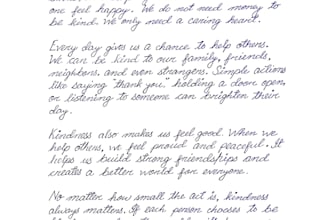 one feel happy. We do not need money to
be kind. We only need a caring heart.
Every day gives us a chance to help others.
We can be kind to our family, friends,
neighbors, and even strangers. Simple actions
like saying "thank you," holding a door open,
or listening to someone can brighten their
day.
Kindness also makes us feel good. When we
help others, we feel proud and peaceful. It
helps us build strong friendships and
creates a better world for everyone.
No matter how small the act is, kindness
always matters. If each person chooses to be